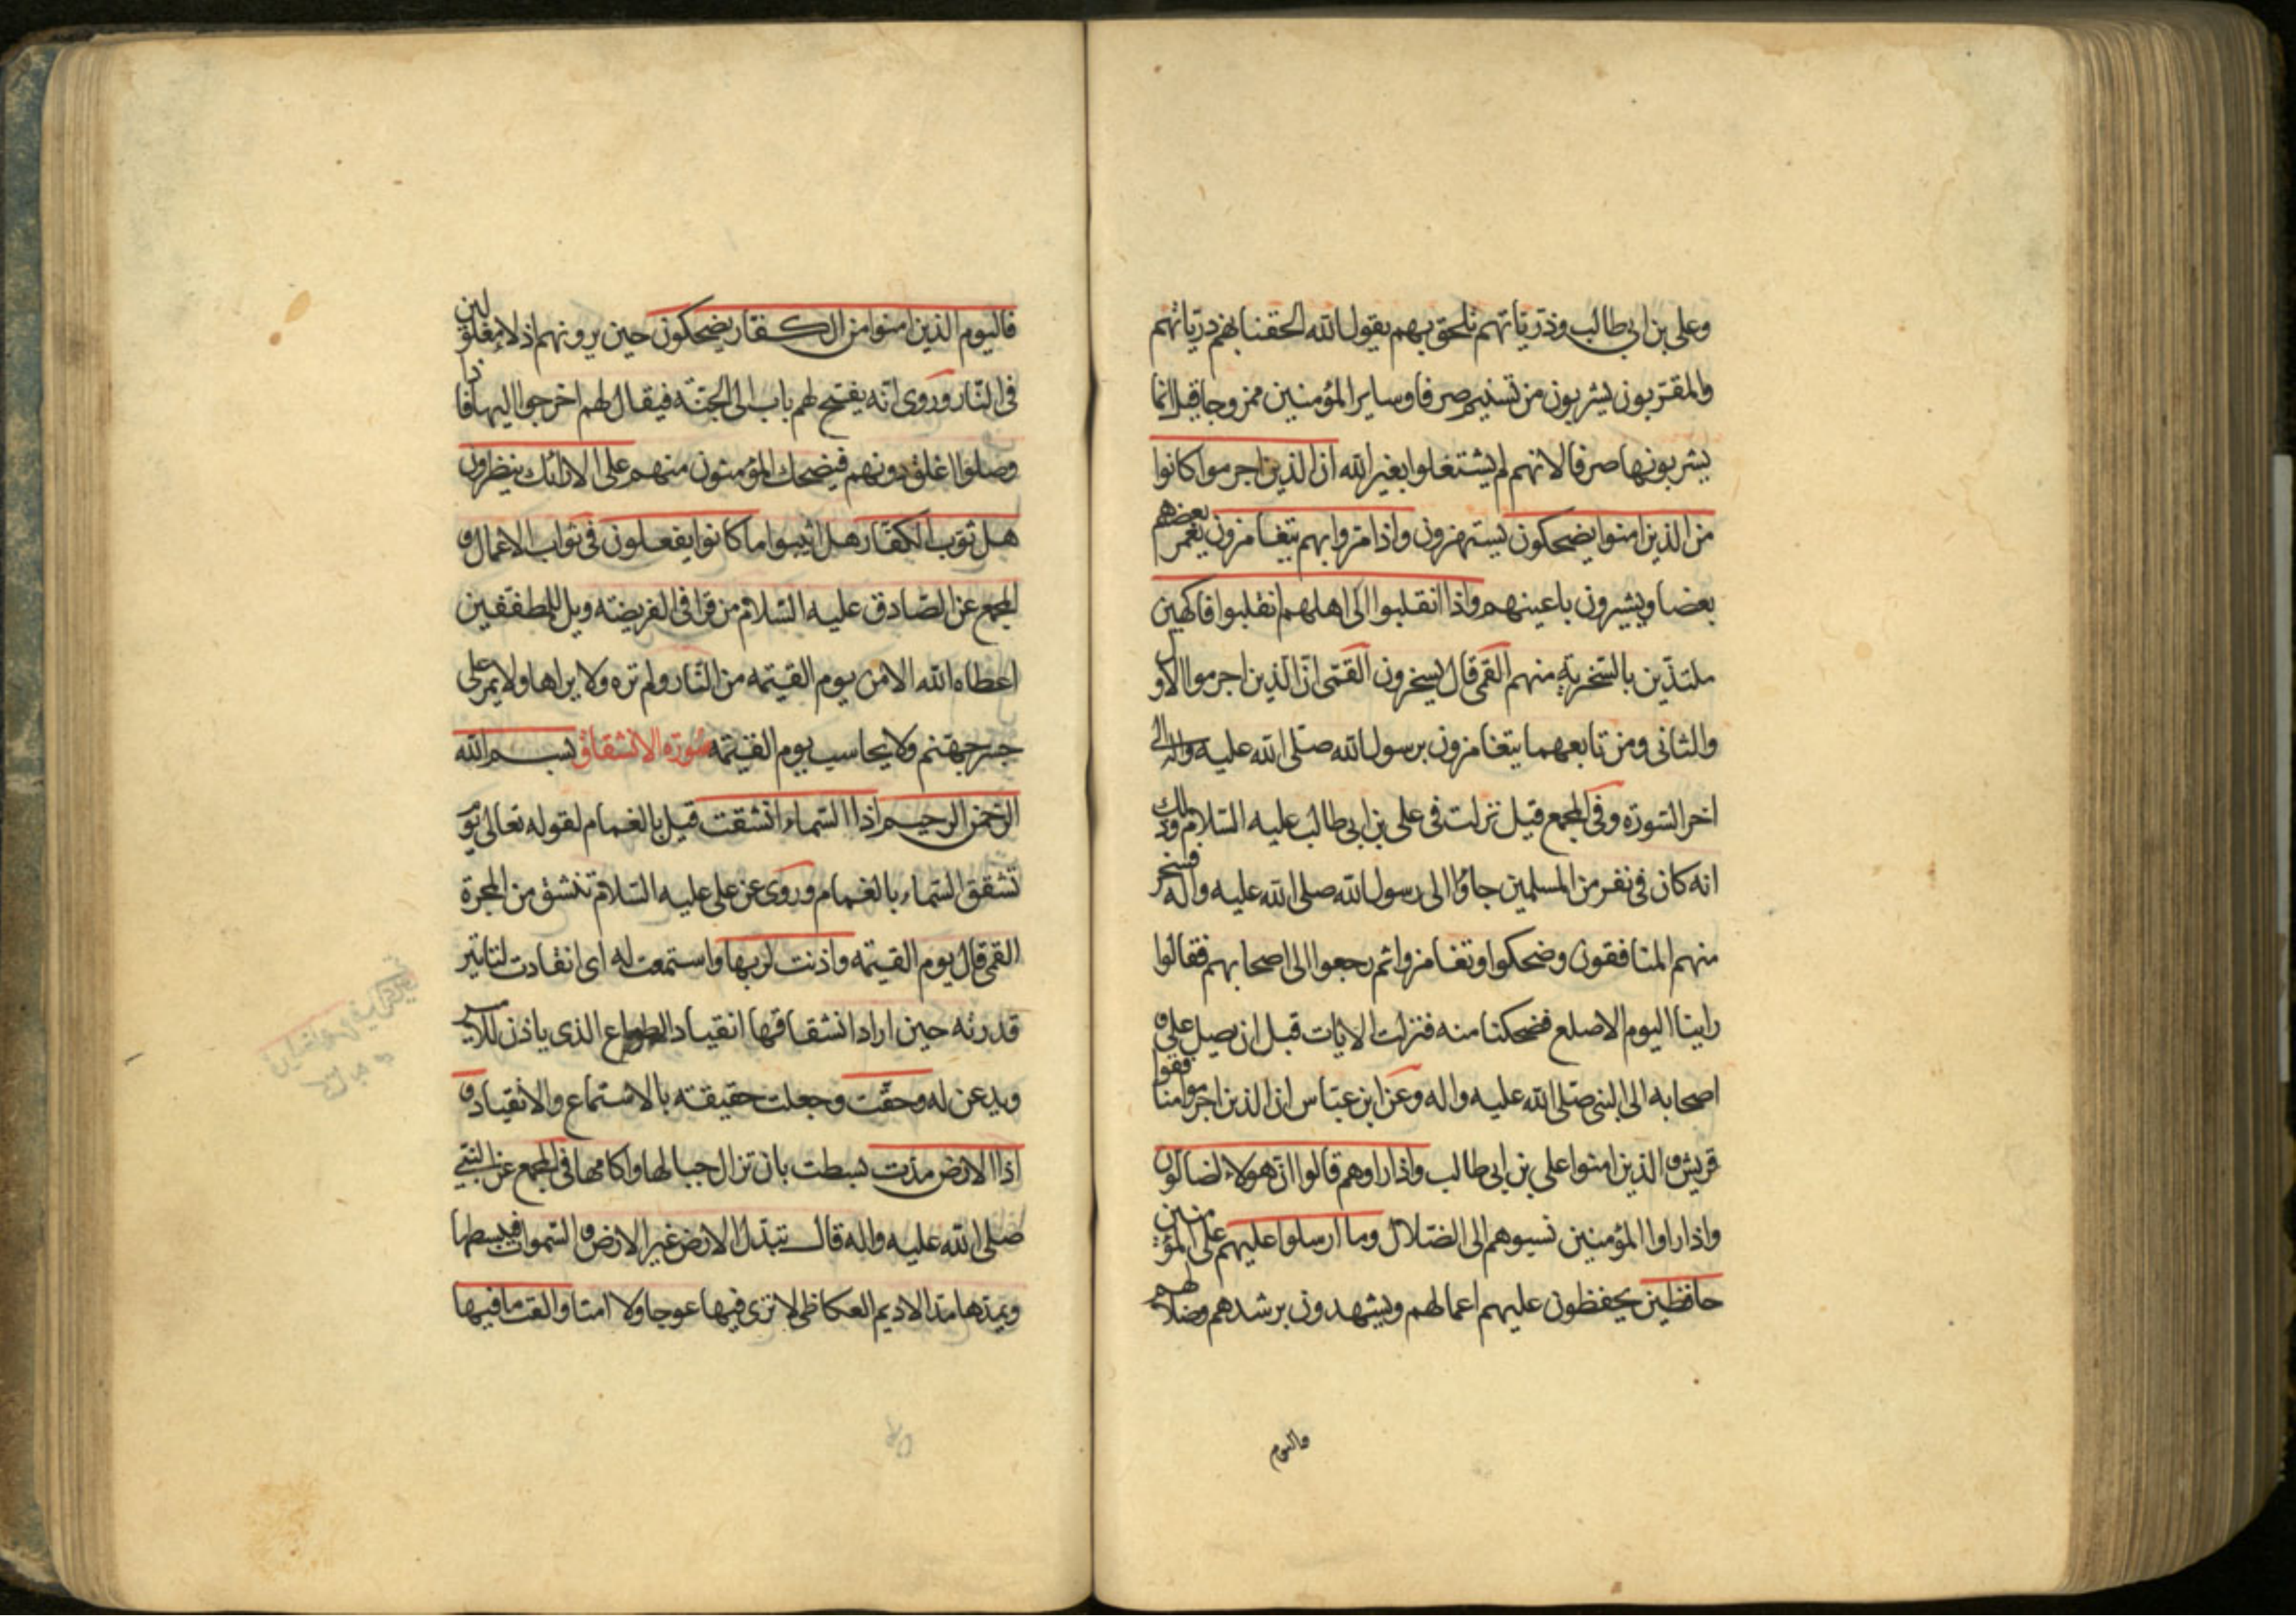 وعلى بن ابي طالب وذرياتهم تلحق بهم يقول الله الحقنا بهم ذرياتهم
والمقربون يشربون من تسنيم صرفا وساير المؤمنين ممزوجا قيل انما
يشربونها صرفا لانهم لم يشتغلوا بغير الله ان الذين اجرموا كانوا
من الذين امنوا يضحكون يستهزون واذا مروا بهم يتغامزون يغمز بعضهم
بعضا ويشيرون باعينهم واذا انقلبوا الى اهلهم انقلبوا فاكهين
ملتذين بالسخرية منهم القمي قال يسخرون القمى ان الذين اجرموا الاول
والثانى ومن تابعهما يتغامزون برسول الله صلى الله عليه واله الى
اخر السورة وفي المجمع قيل نزلت في على بن ابي طالب عليه السلام وذلك
انه كان في نفر من المسلمين جاؤا الى رسول الله صلى الله عليه واله فسخر
منهم المنافقون وضحكوا وتغامزوا ثم رجعوا الى اصحابهم فقالوا
راينا اليوم الاصلع فضحكنا منه فنزلت الايات قبل ان يصل على و
اصحابه الى النبى صلى الله عليه واله وعن ابن عباس ان الذين اجرموا منافقوا
قريش و الذين امنوا على بن ابي طالب واذا راوهم قالوا ان هولاء لضالون
واذا راوا المؤمنين نسبوهم الى الضلال وما ارسلوا عليهم على المؤمنين
حافظين يحفظون عليهم اعمالهم ويشهدون برشدهم وضلالهم
فاليوم
فاليوم الذين امنوا من الكفار يضحكون حين يرونهم اذلاء مغلولين
فى النار وروى انه يفتح لهم باب الى الجنة فيقال لهم اخرجوا اليها فاذا
وصلوا اغلق دونهم فيضحك المؤمنون منهم على الارائك ينظرون
هل ثوب الكفار هل اثيبوا ما كانوا يفعلون في ثواب الاعمال و
المجمع عن الصادق عليه السلام من قرا في الفريضة ويل للمطففين
اعطاه الله الامن يوم القيمة من النار ولم تره ولا يراها ولا يمر على
جسر جهنم ولا يحاسب يوم القيمة سورة الانشقاق بسم الله
الرحمن الرحيم اذا السماء انشقت قيل بالغمام لقوله تعالى يوم
تشقق السماء بالغمام وروى عن على عليه السلام تنشق من المجرة
القمي قال يوم القيمة واذنت لربها واستمعت له اى انقادت لتاثير
قدرته حين اراد انشقاقها انقياد المطواع الذى ياذن للامر
ويذعن له وحقت وجعلت حقيقته بالاستماع والانقياد و
اذا الارض مدت بسطت بان تزال جبالها واكامها فى المجمع عن النبي
صلى الله عليه واله قال تبدل الارض غير الارض و السموات فيبسطها
ويمدها مد الاديم العكاظى لا ترى فيها عوجا ولا امتا والقت ما فيها